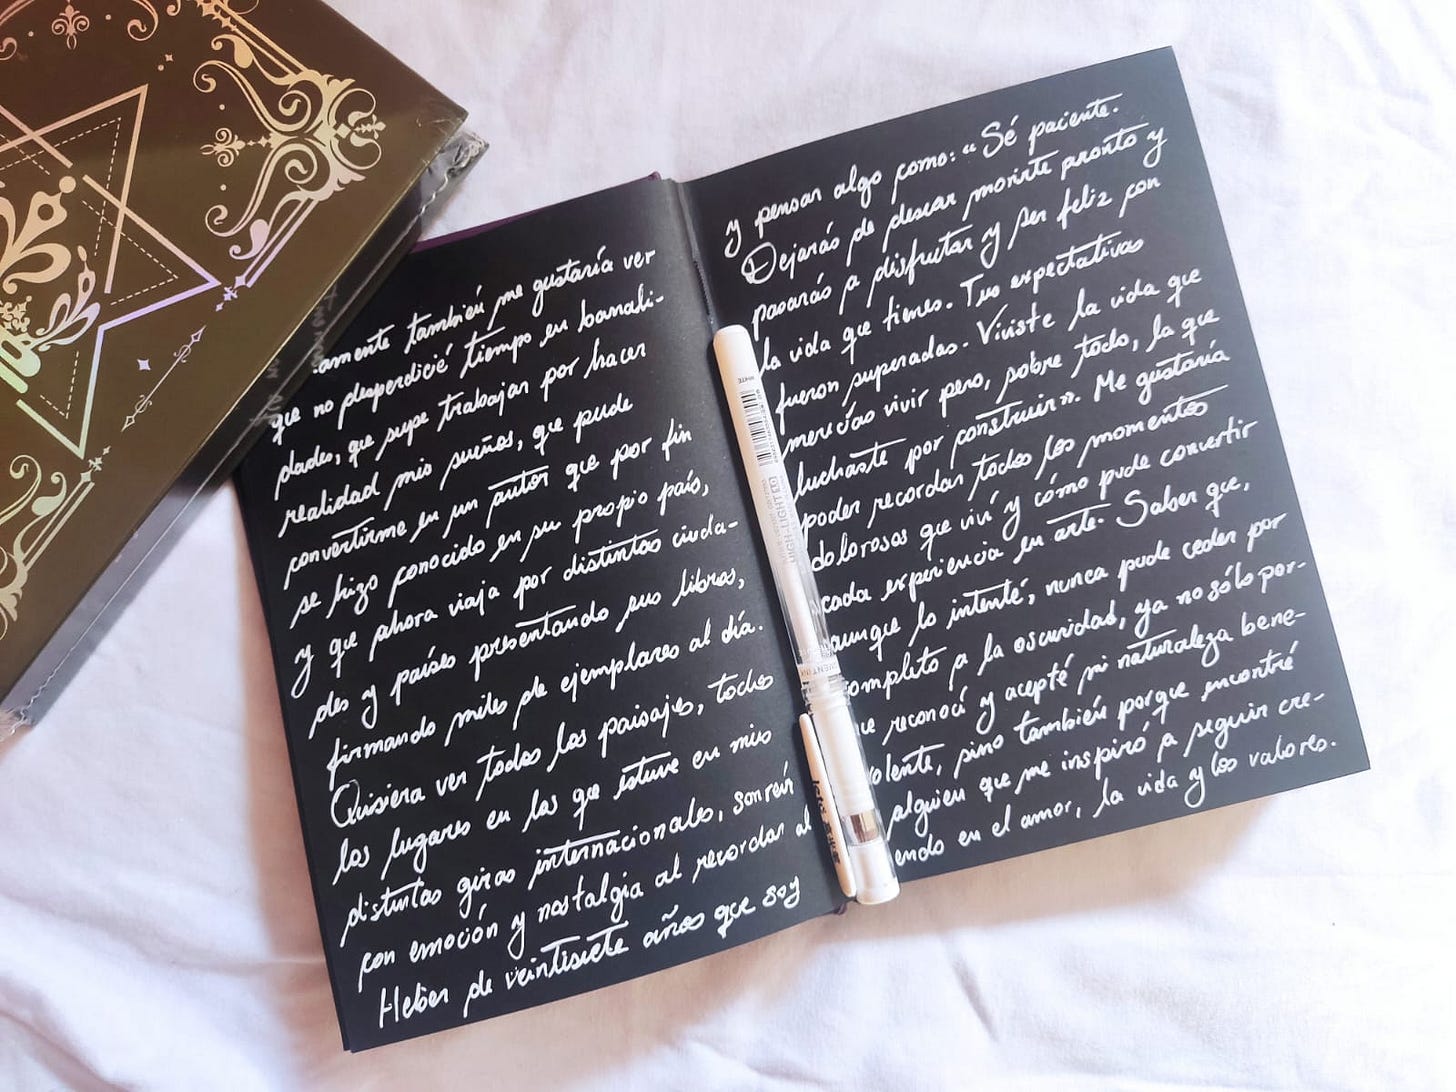 amente también me gustaría ver
que no desperdicié tiempo en banali-
dades, que supe trabajar por hacer
realidad mis sueños, que pude
convertirme en un autor que por fin
se hizo conocido en su propio país,
y que ahora viaja por distintas ciuda-
des y países presentando sus libros,
firmando miles de ejemplares al día.
Quisiera ver todos los paisajes, todos
los lugares en los que estuve en mis
distintas giras internacionales, sonreír
con emoción y nostalgia al recordar al
Heber de veintisiete años que soy
y pensar algo como: "Sé paciente.
Dejarás de desear morirte pronto y
pasarás a disfrutar y ser feliz con
la vida que tienes. Tus expectativas
fueron superadas. Viviste la vida que
merecías vivir pero, sobre todo, la que
luchaste por construir». Me gustaría
poder recordar todos los momentos
dolorosos que viví y cómo pude convertir
cada experiencia en arte. Saber que,
aunque lo intenté, nunca pude ceder por
completo a la oscuridad, ya no sólo por-
que reconocí y acepté mi naturaleza bene-
volente, sino también porque encontré
alguien que me inspiró a seguir cre-
endo en el amor, la vida y los valores.
WHITE
HIGH-LIGHT